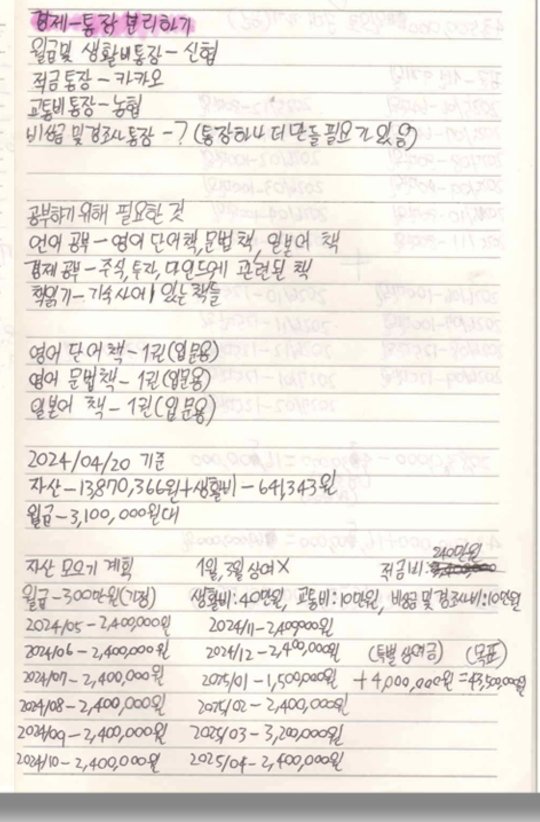 경제-통장 분리하기
월급 및 생활비통장 - 신협
적금통장 - 카카오
교통비통장 - 농협
비상금 및 경조사통장 - ? (통장하나 더 만들 필요가 있음)
공부하기 위해 필요한 것
언어 공부 - 영어 단어책, 문법 책, 일본어 책
경제 공부 - 주식, 투자, 마인드에 관련된 책
책읽기 - 기숙사에 있는 책들
영어 단어 책 - 1권(입문용)
영어 문법책 - 1권(입문용)
일본어 책 - 1권(입문용)
2024/04/20 기준
자산 - 13,870,366원 + 생활비 - 641,343원
월급 - 3,100,000원대
자산 모으기 계획 1월, 3월 상여X 적금비: 240만원
월급 - 300만원(가정) 생활비: 40만원, 교통비: 10만원, 비상금 및 경조사비: 10만원
2024/05 - 2,400,000원 2024/11 - 2,400,000원
2024/06 - 2,400,000원 2024/12 - 2,400,000원 (특별 상여금) (목표)
2024/07 - 2,400,000원 2025/01 - 1,500,000원 + 4,000,000원 = 43,500,000원
2024/08 - 2,400,000원 2025/02 - 2,400,000원
2024/09 - 2,400,000원 2025/03 - 3,200,000원
2024/10 - 2,400,000원 2025/04 - 2,400,000원